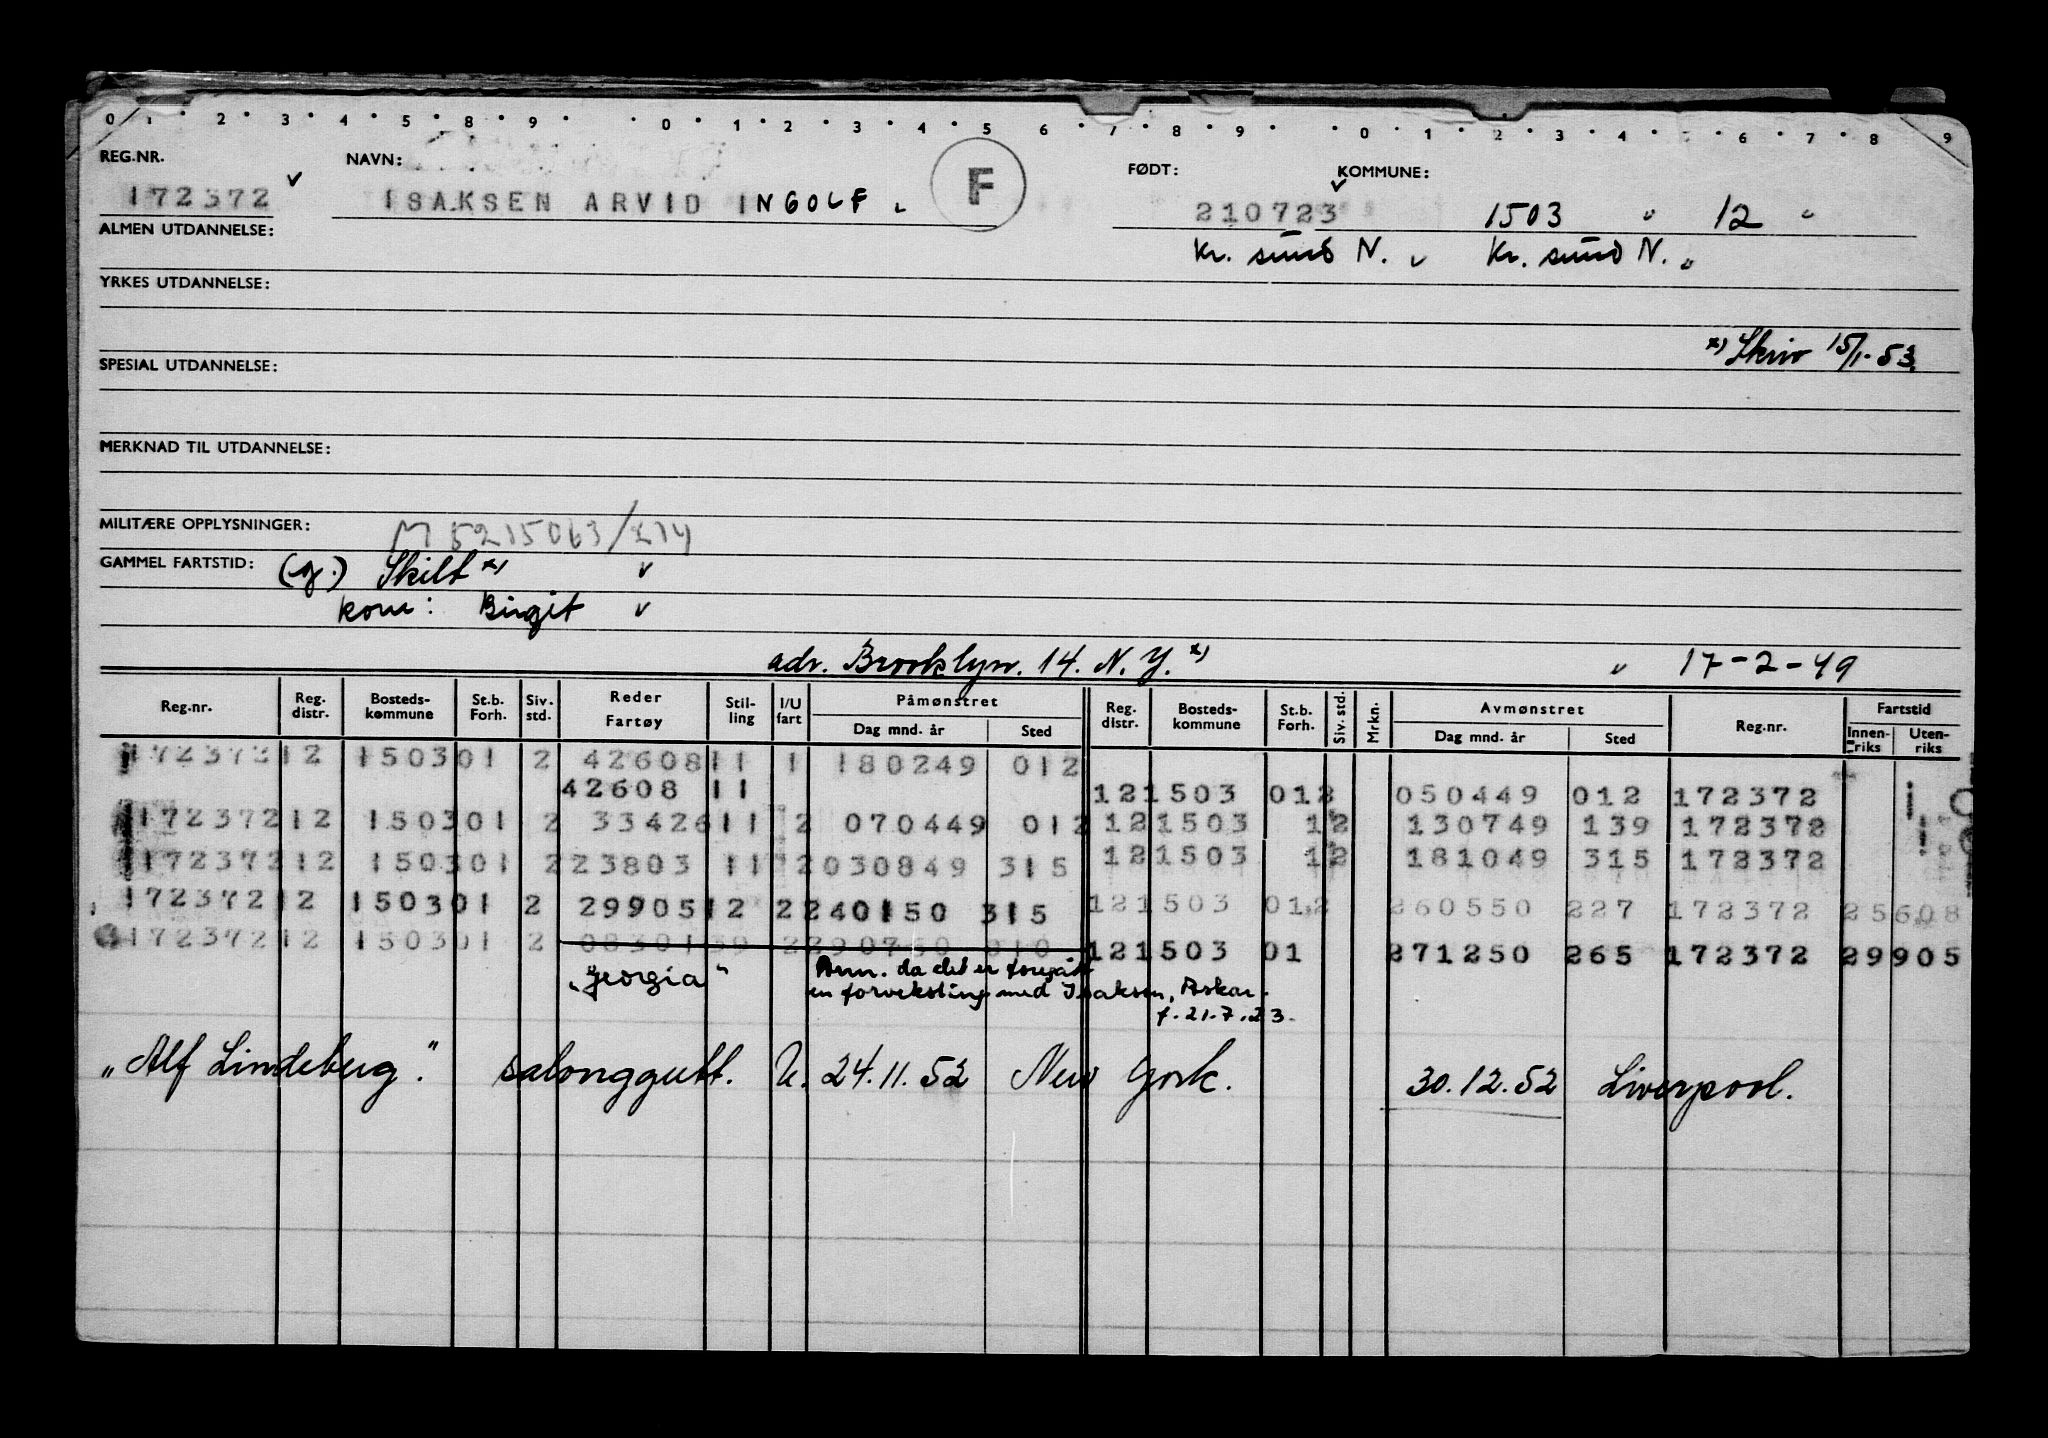 0 1 2 3 4 5 8 9 0 1 2 3 4 5 6 7 8 9 0 1 2 3 4 5 6 7 8 9
REG.NR. NAVN: F FØDT: KOMMUNE:
172372 ISAKSEN ARVID INGOLF 210723 1503 12
ALMEN UTDANNELSE: Kr. sund N. Kr. sund N.
YRKES UTDANNELSE:
x) Skriv 15/1-53
SPESIAL UTDANNELSE:
MERKNAD TIL UTDANNELSE:
MILITÆRE OPPLYSNINGER: M 5215063/214
GAMMEL FARTSTID: (g.) Skilt x)
kone: Birgit
adr. Brooklyn. 14. N.Y. x) 17-2-49
Reg.nr. Reg. distr. Bosteds-kommune St.b. Forh. Siv. std. Reder Fartøy Stil-ling I/U fart Påmønstret Dag mnd. år Sted Reg. distr. Bosteds-kommune St.b. Forh. Siv. std. Mrkn. Avmønstret Dag mnd. år Sted Reg.nr. Fartstid Innen-riks Uten-riks
172372 12 1503 01 2 42608 11 1 180249 012
42608 11 12 1503 01 2 050449 012 172372
172372 12 1503 01 2 33426 11 2 070449 012 12 1503 1 2 130749 139 172372
172372 12 1503 01 2 23803 11 2 030849 315 12 1503 1 2 181049 315 172372
172372 12 1503 01 2 29905 12 2 240150 315 12 1503 01 2 260550 227 172372 25608
172372 12 1503 01 2 08301 59 2 290750 010 12 1503 01 271250 265 172372 29905
"Georgia" Ann. da det er foregått
en forveksling med Isaksen, Askar.
f. 21.7.23.
"Alf Lindeberg." salonggutt. U. 24.11.52 New York. 30.12.52 Liverpool.